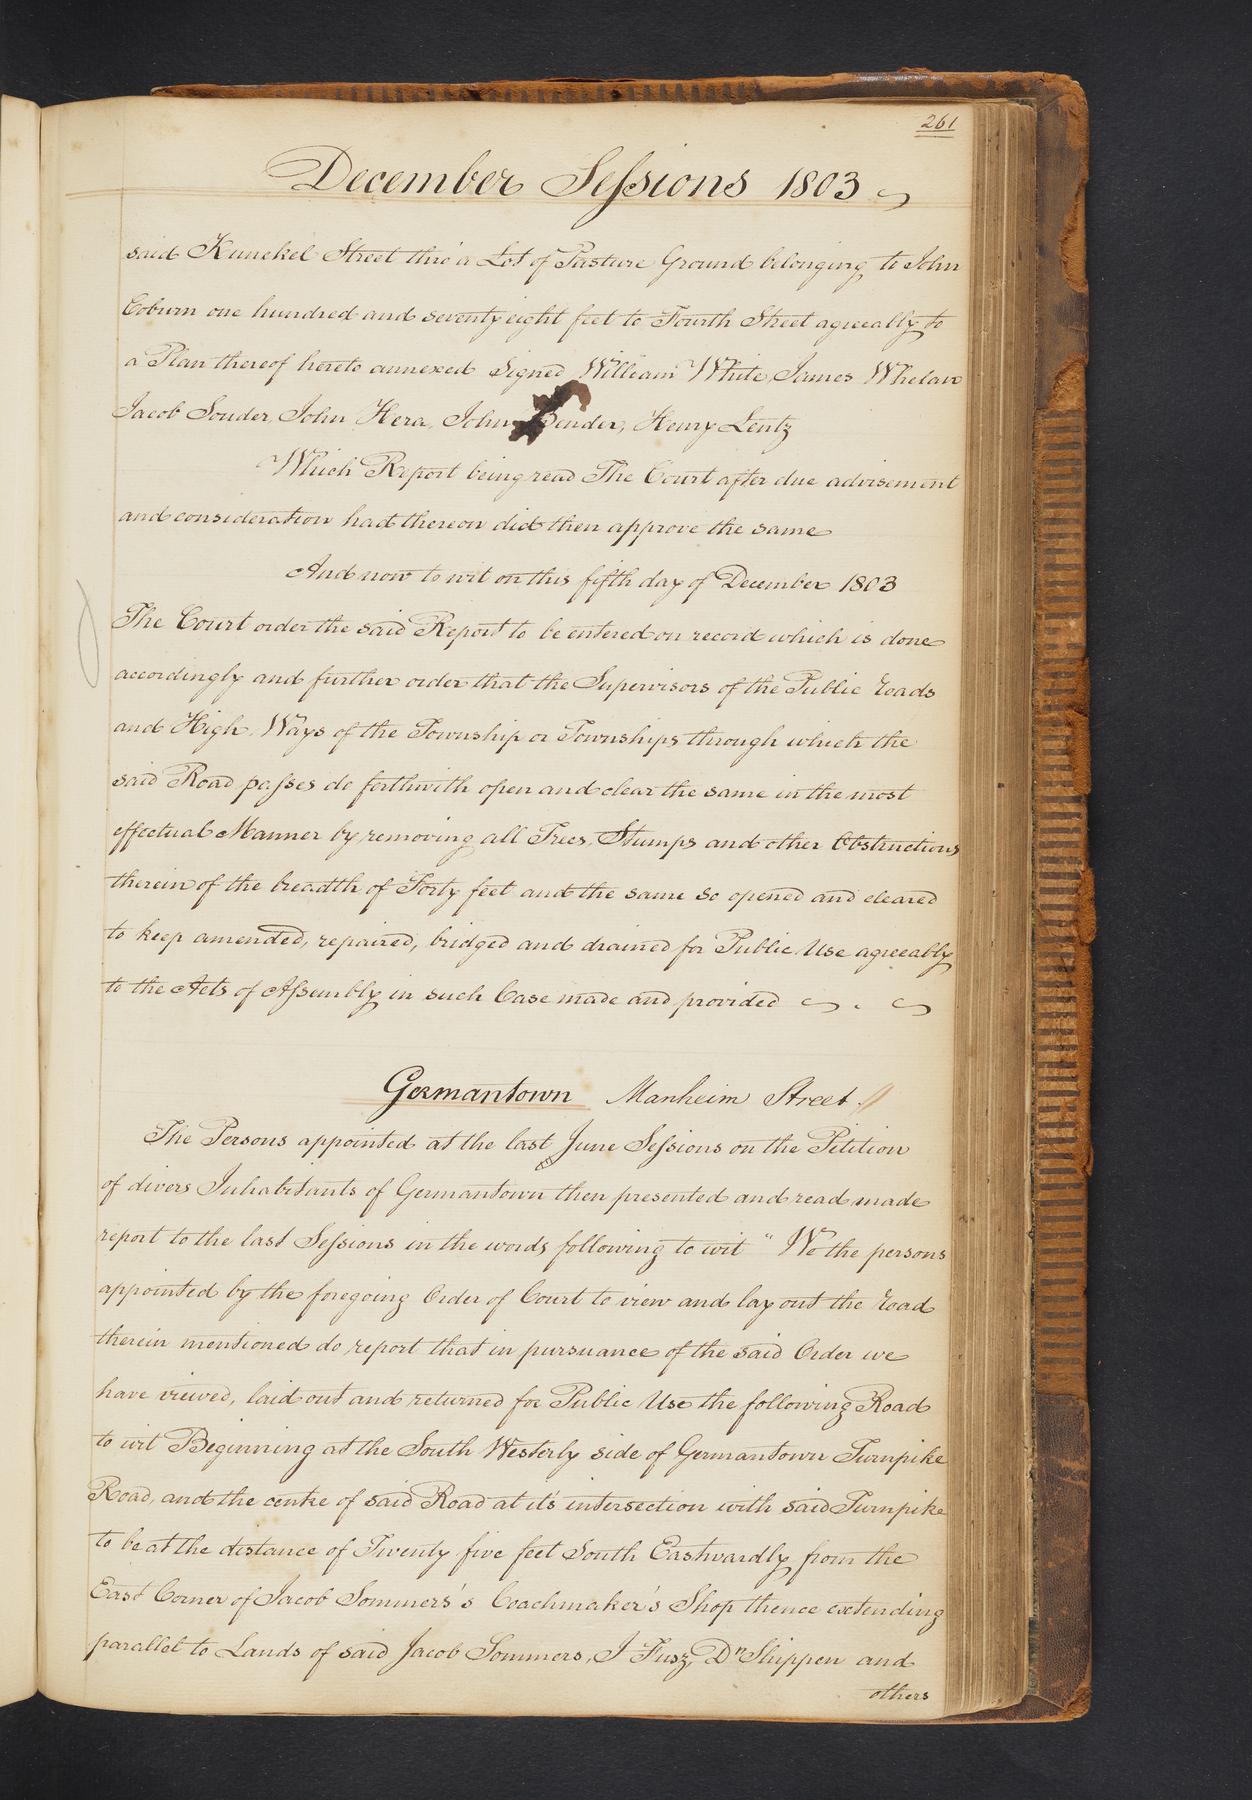 261
December Sessions 1803
said Kunckel Street thro' a Lot of Pasture Ground belonging to John
Coburn one hundred and seventy eight feet to Fourth Street agreeably to
a Plan thereof hereto annexed Signed William White, James Whelan
Jacob Souder, John Hera, John Bender, Henry Lentz
Which Report being read The Court after due advisement
and consideration had thereon did then approve the same
And now to wit on this fifth day of December 1803
The Court order the said Report to be entered on record which is done
accordingly and further order that the Supervisors of the Public roads
and High Ways of the Township or Townships through which the
said Road passes do forthwith open and clear the same in the most
effectual Manner by removing all Trees, Stumps and other Obstructions
therein of the breadth of Forty feet and the same so opened and cleared
to keep amended, repaired, bridged and drained for Public Use agreeably
to the Acts of Assembly in such Case made and provided
Germantown Manheim Street
The Persons appointed at the last June Sessions on the Petition
of divers Inhabitants of Germantown then presented and read made
report to the last Sessions in the words following to wit " We the persons
appointed by the foregoing Order of Court to view and lay out the road
therein mentioned do report that in pursuance of the said Order we
have viewed, laid out and returned for Public Use the following Road
to wit Beginning at the South Westerly side of Germantown Turnpike
Road, and the centre of said Road at it's intersection with said Turnpike
to be at the distance of Twenty five feet South Eastwardly from the
East Corner of Jacob Sommers's Coachmaker's Shop thence extending
parallel to Lands of said Jacob Sommers, J Fusz, Dr Shippen and
others